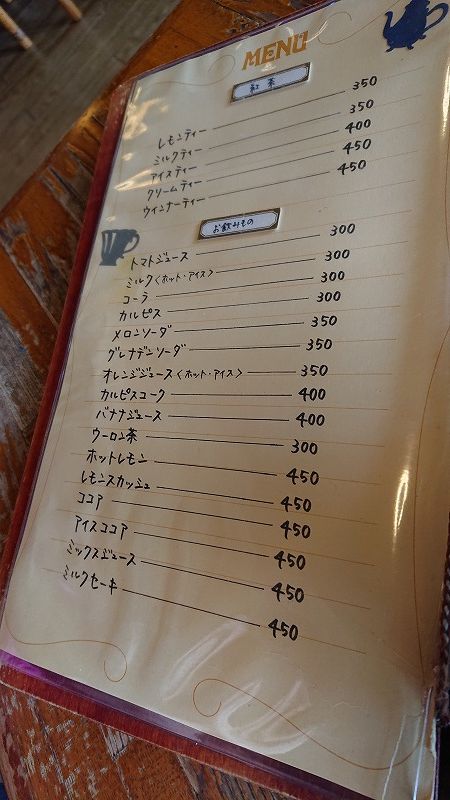 MENU
紅茶
レモンティー 350
ミルクティー 350
アイスティー 400
クリームティー 450
ウインナーティー 450
お飲みもの
トマトジュース 300
ミルク〈ホット・アイス〉 300
コーラ 300
カルピス 300
メロンソーダ 350
グレナデンソーダ 350
オレンジジュース〈ホット・アイス〉 350
カルピスコーク 400
バナナジュース 400
ウーロン茶 300
ホットレモン 450
レモンスカッシュ 450
ココア 450
アイスココア 450
ミックスジュース 450
ミルクセーキ 450